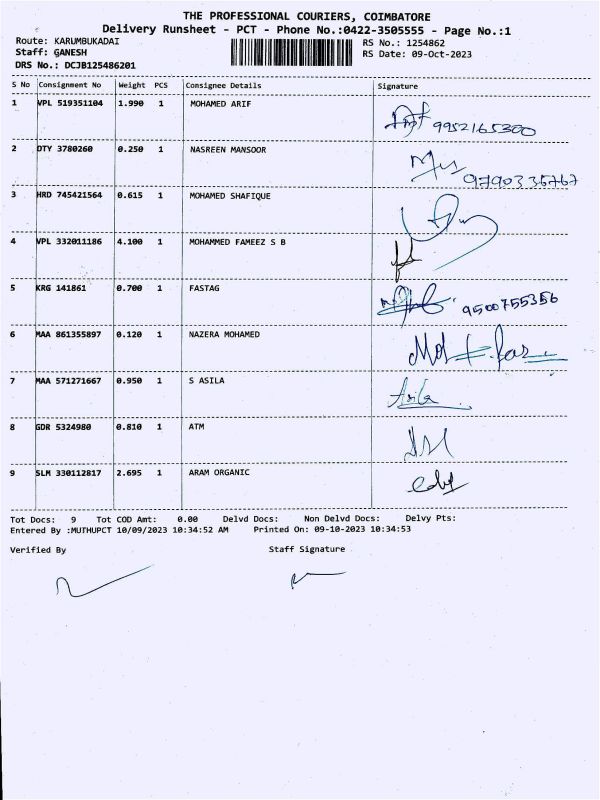 THE PROFESSIONAL COURIERS, COIMBATORE
Delivery Runsheet - PCT - Phone No.:0422-3505555 - Page No.:1
Route: KARUMBUKADAI RS No.: 1254862
Staff: GANESH RS Date: 09-Oct-2023
DRS No.: DCJB125486201
S No Consignment No Weight PCS Consignee Details Signature
1 VPL 519351104 1.990 1 MOHAMED ARIF
9952165300
2 DTY 3780260 0.250 1 NASREEN MANSOOR
9790335767
3 HRD 745421564 0.615 1 MOHAMED SHAFIQUE
4 VPL 332011186 4.100 1 MOHAMMED FAMEEZ S B
5 KRG 141861 0.700 1 FASTAG
9500755356
6 MAA 861355897 0.120 1 NAZERA MOHAMED
7 MAA 571271667 0.950 1 S ASILA
Asila
8 GDR 5324980 0.810 1 ATM
9 SLM 330112817 2.695 1 ARAM ORGANIC
Tot Docs: 9 Tot COD Amt: 0.00 Delvd Docs: Non Delvd Docs: Delvy Pts:
Entered By :MUTHUPCT 10/09/2023 10:34:52 AM Printed On: 09-10-2023 10:34:53
Verified By Staff Signature